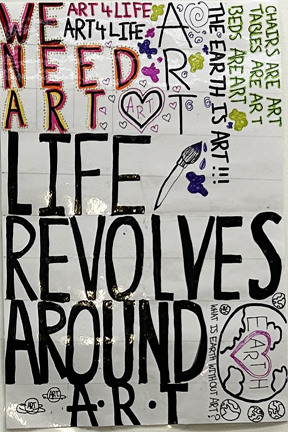 WE
NEED
ART
ART 4 LIFE
ART 4 LIFE
ART
ART
THE EARTH IS ART !!!
CHAIRS ARE ART
TABLES ARE ART
BEDS ARE ART
LIFE
REVOLVES
AROUND
A·R·T
WHAT IS EARTH WITHOUT ART?
EARTH
ART
ART
ART